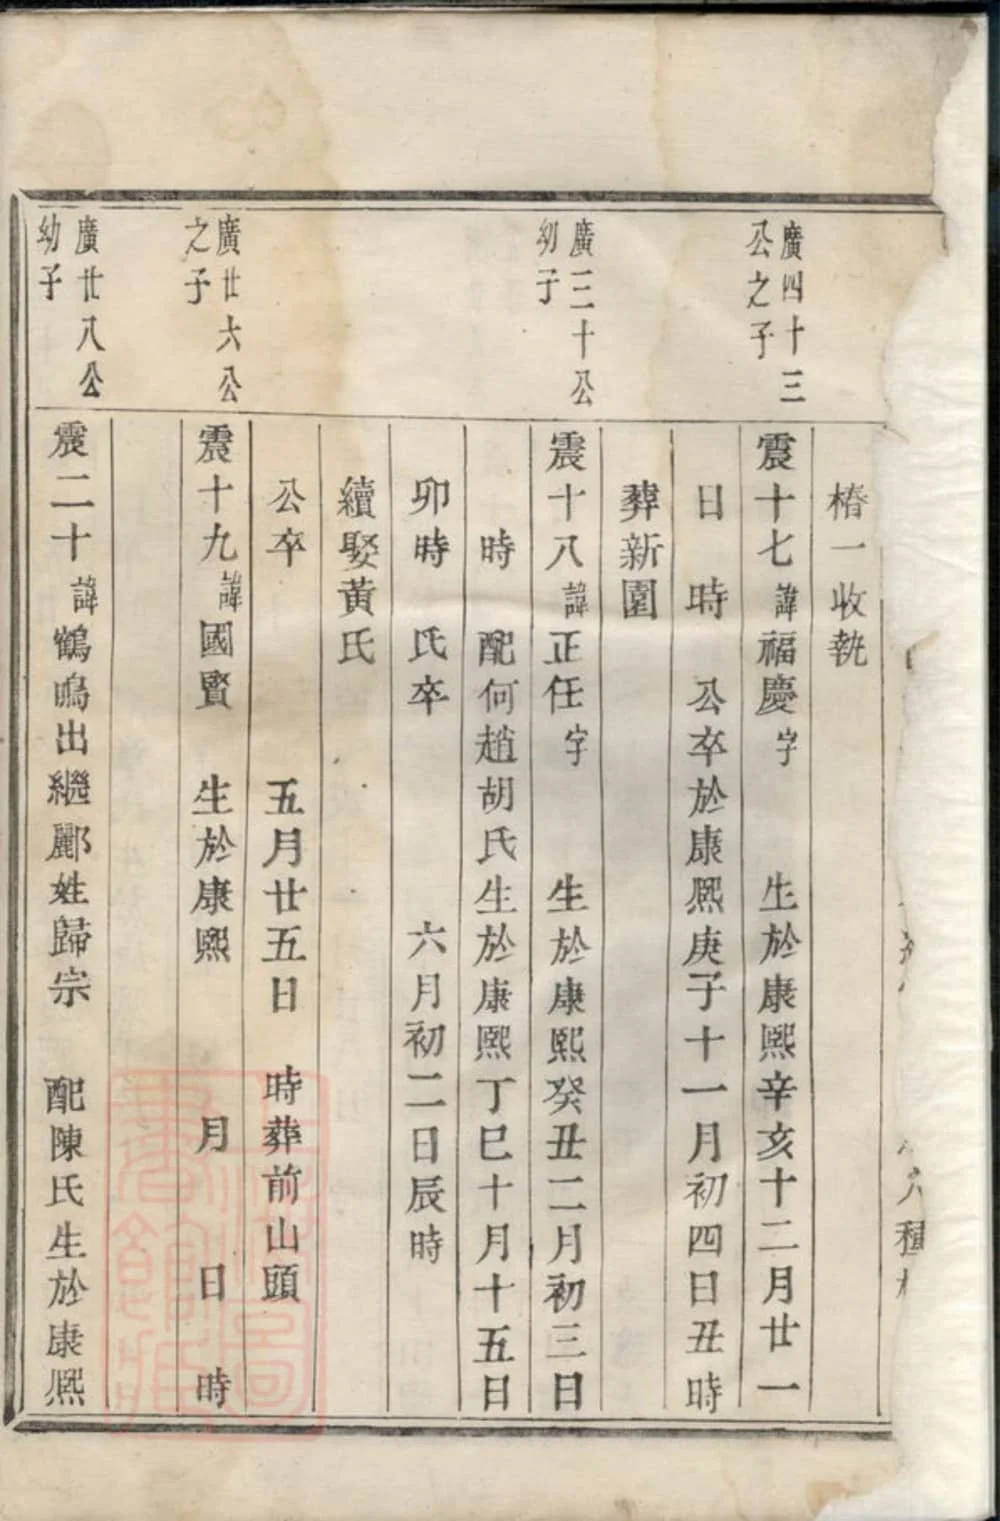 種
椿一收執
廣四十三
公之子
震十七諱福慶字 生於康熙辛亥十二月廿一
日 時 公卒於康熙庚子十一月初四日丑時
葬新園
廣三十公
幼子
震十八諱正任字 生於康熙癸丑二月初三日
時 配何趙胡氏生於康熙丁巳十月十五日
卯時 氏卒 六月初二日辰時
續娶黃氏
公卒 五月廿五日 時葬前山頭
廣廿六公
之子
震十九諱國賢 生於康熙 月 日 時
廣廿八公
幼子
震二十諱鶴鳴出繼酈姓歸宗 配陳氏生於康熙